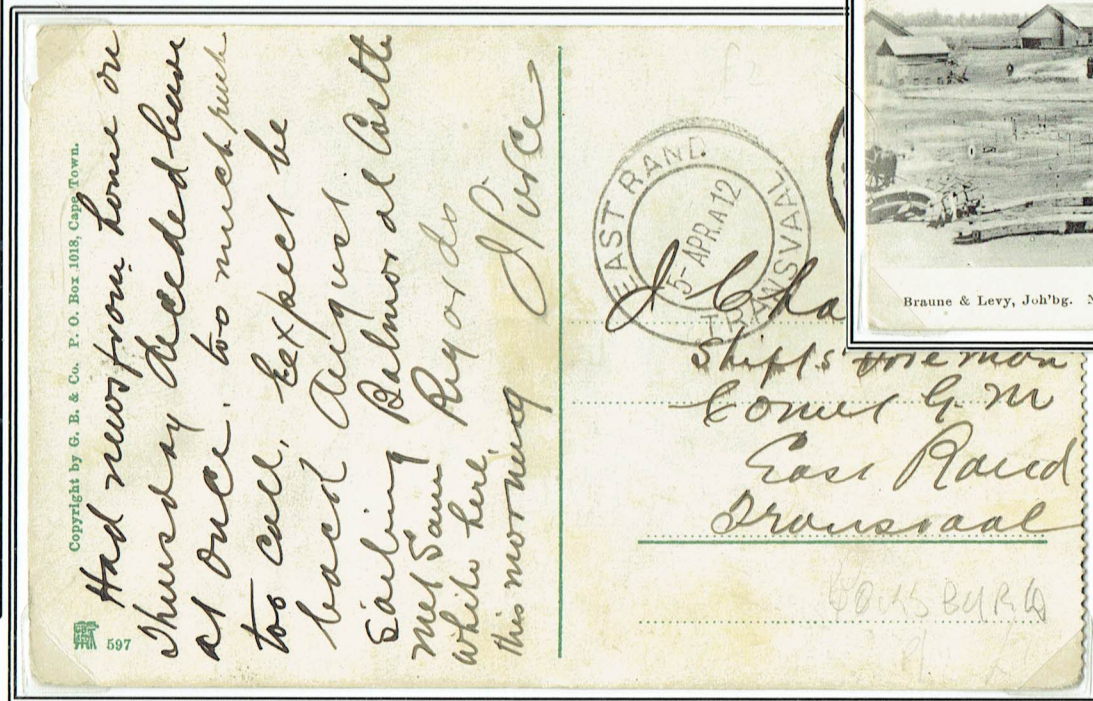 Copyright by G. B. & Co. P. O. Box 1018, Cape Town.
597
Had news from home on
Thursday decided leave
at once. too much rush
to call, Expect be
back August.
Sailing Balmoral Castle
met Sam
white here,
this morning
Regards
J Pierce
EAST RAND
5 APR.A12
TRANSVAAL
J C
Shifts foreman
Comet G. M
East Rand
Transvaal
BOKSBURG
Braune & Levy, Joh'bg.